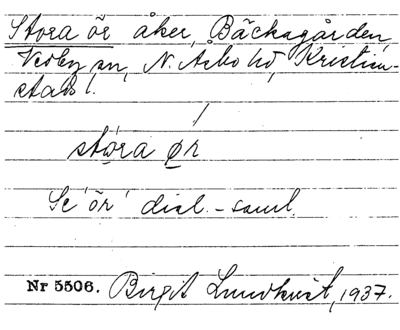 Stora ör åker, Bäckagården,
Vedby sn, N. Åsbo hd, Kristian-
stads l.
/
stóra ør
Se 'ör' dial.-saml.
Nr 5506. Birgit Lundkvist, 1937.